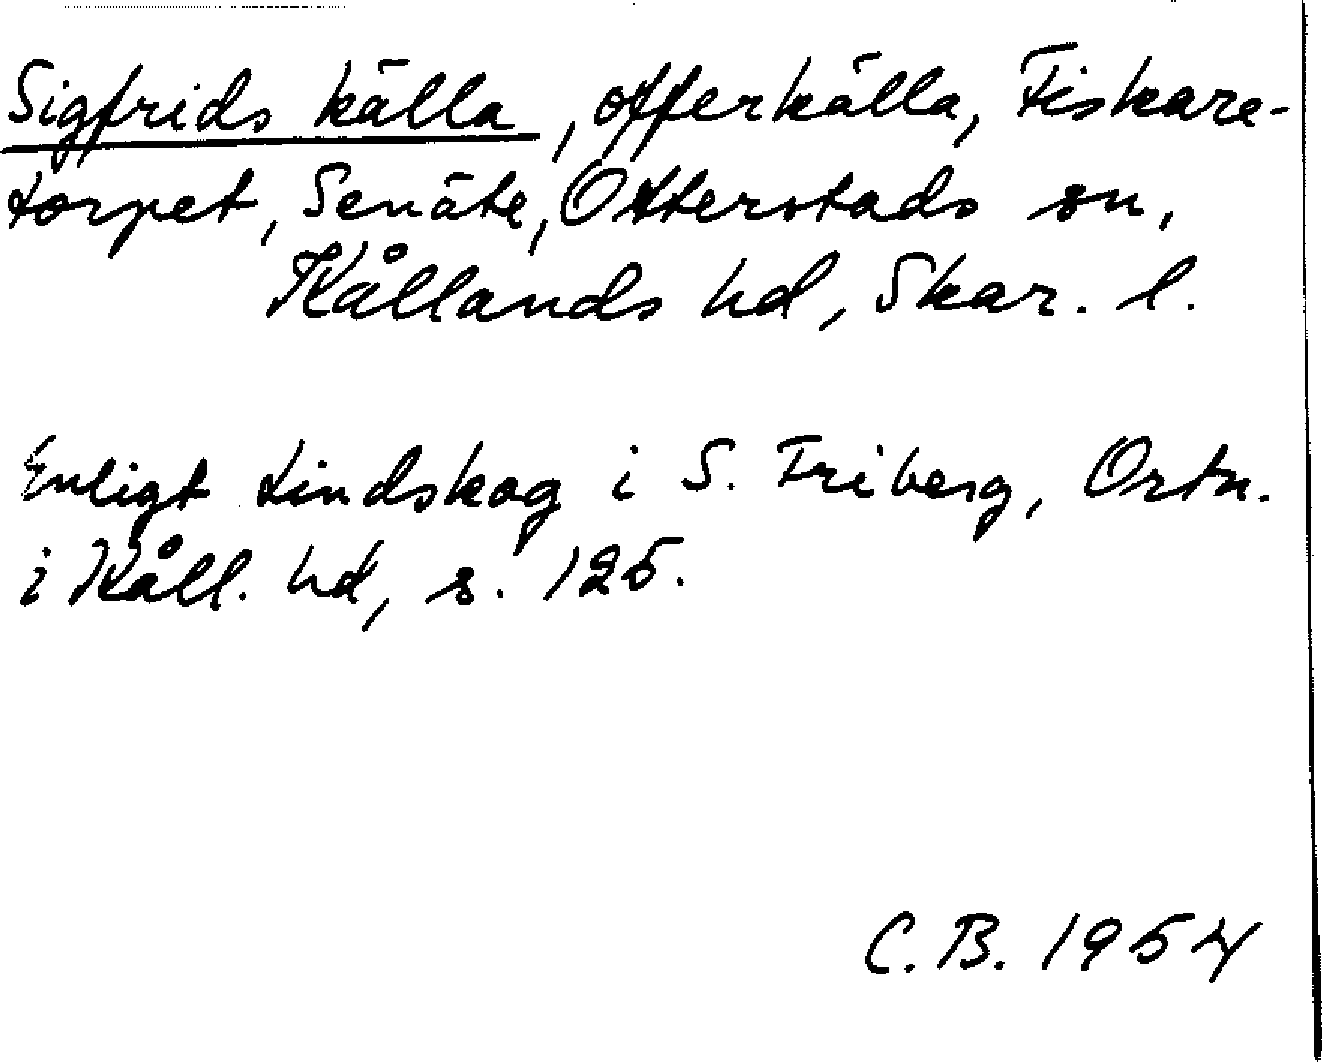 Sigfrids källa, offerkälla, Fiskare-
torpet, Senäte, Otterstads sn,
Kållands hd, Skar. l.
Enligt Lindskog i S. Friberg, Ortn.
i Kåll. hd, s. 125.
C.B. 1954